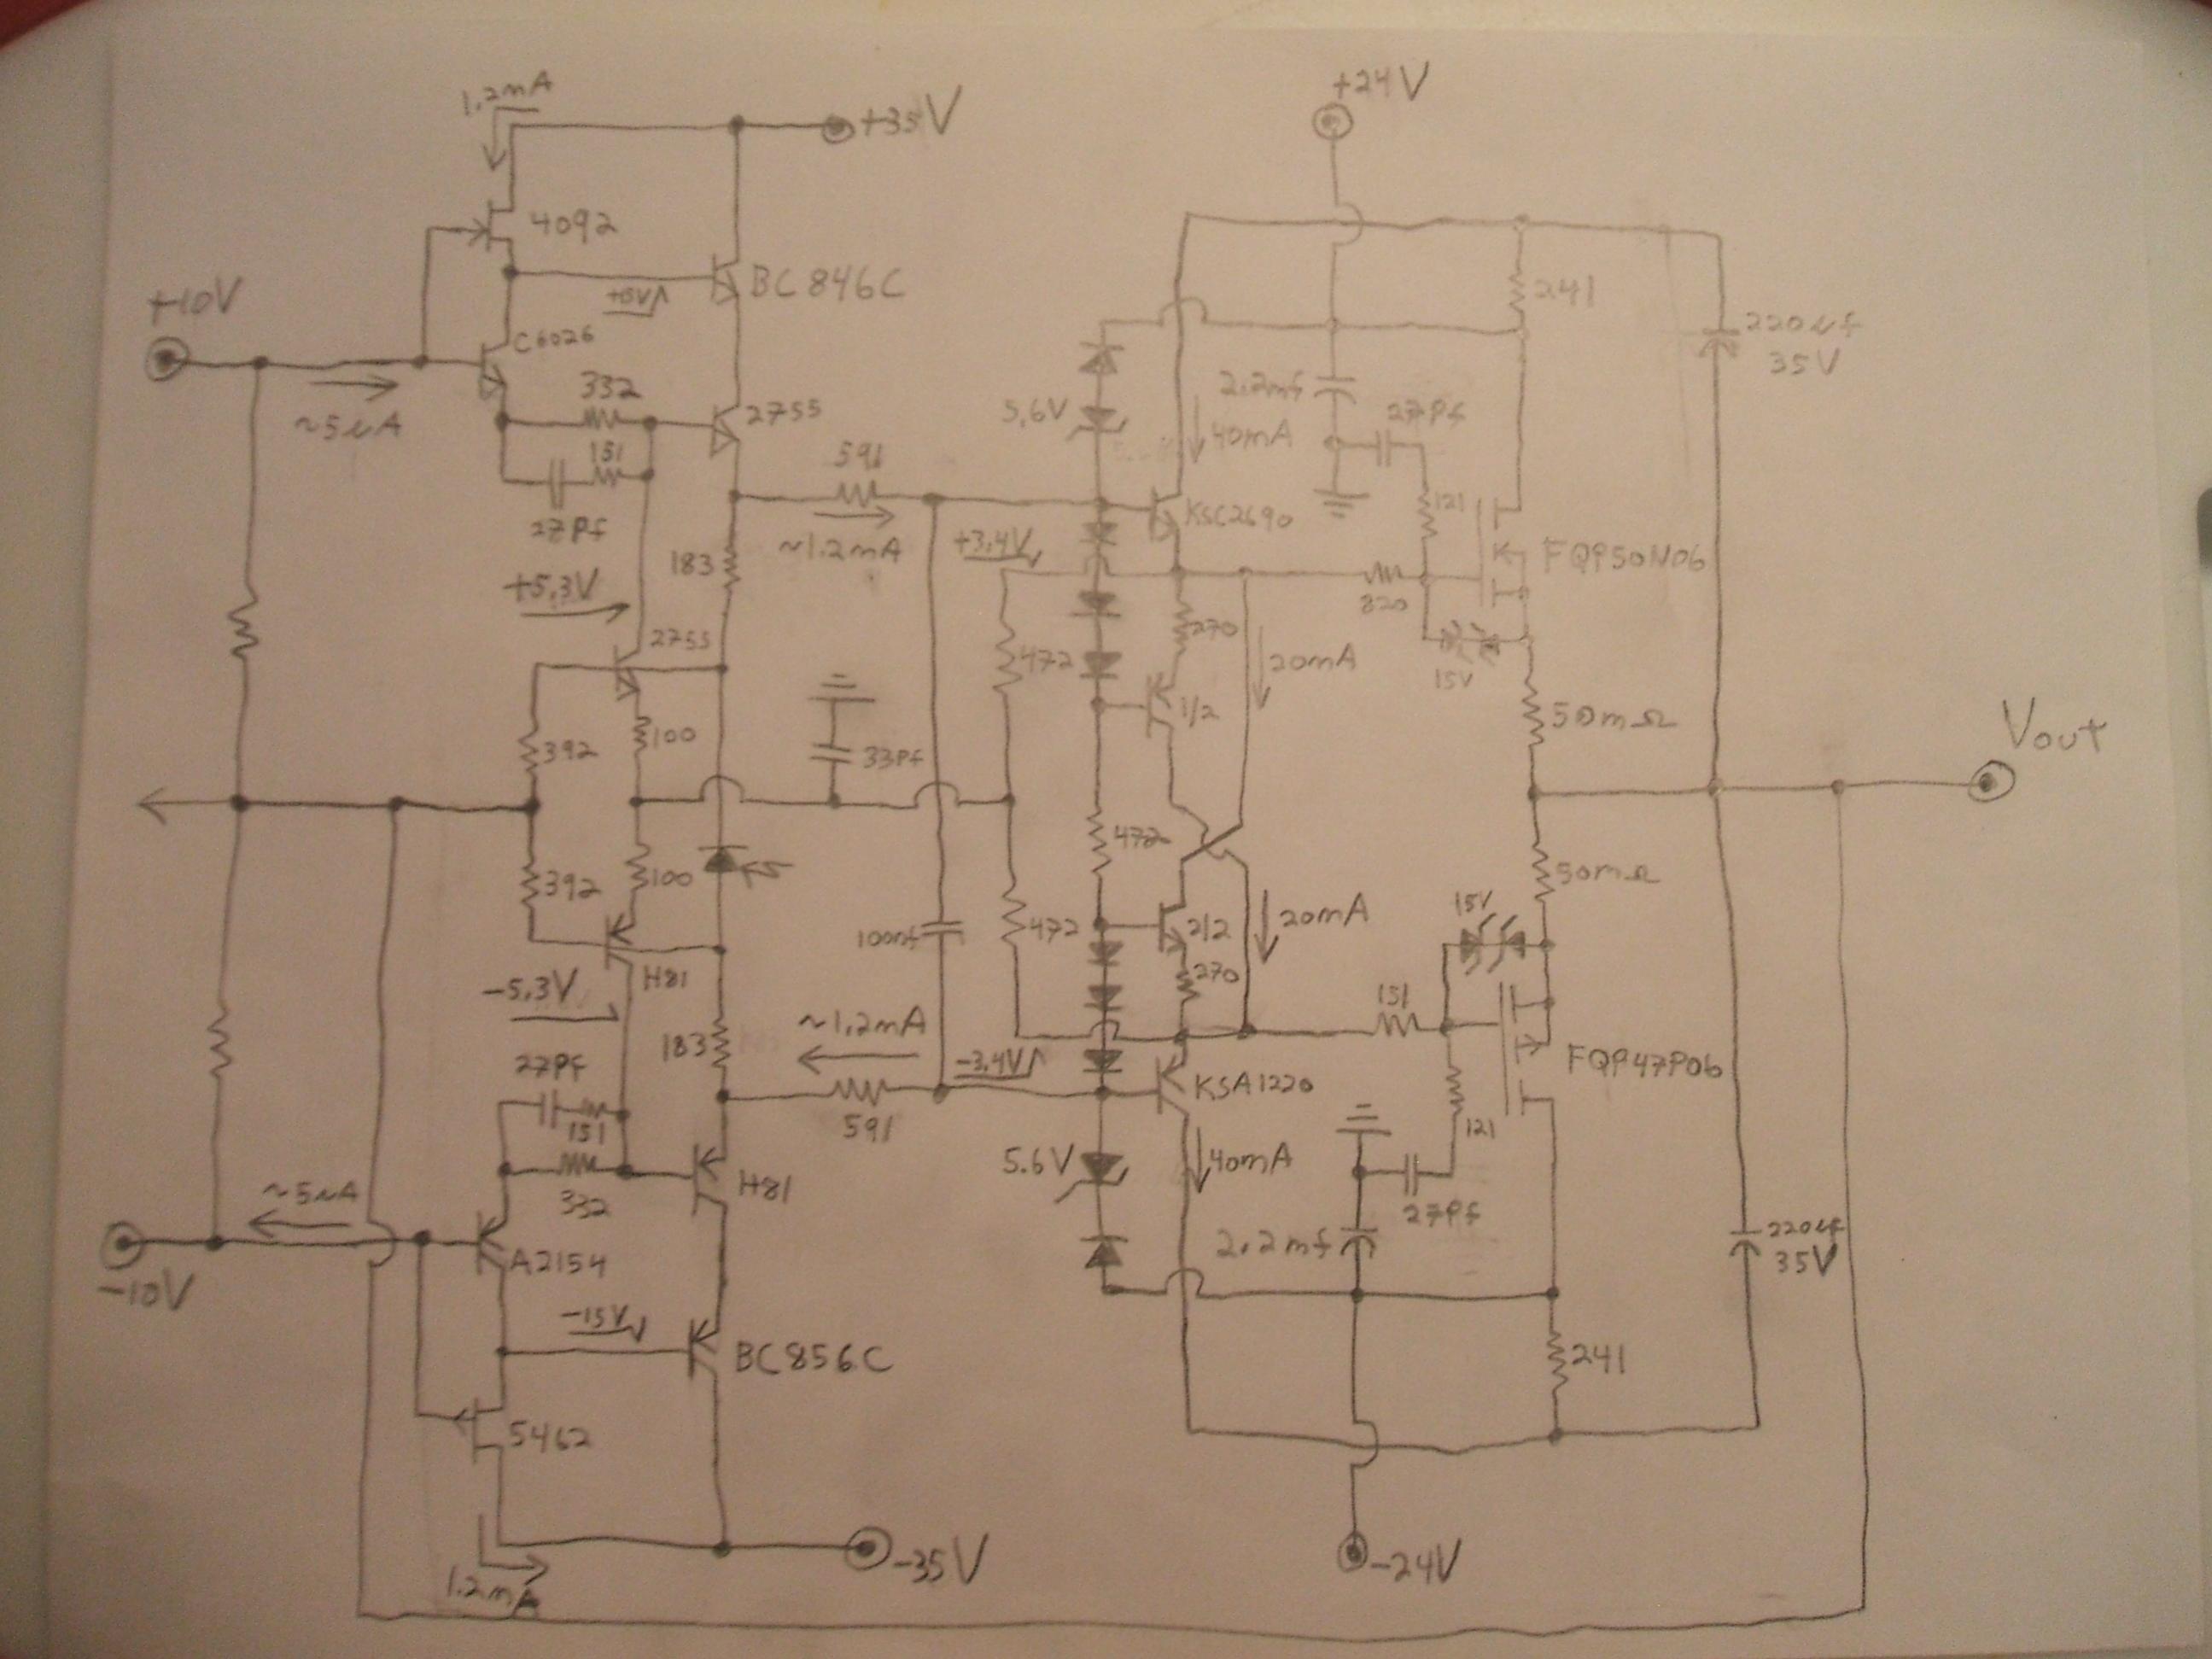 1.2mA
+35V
+24V
4092
BC846C
241
+10V
C6026
220uf
35V
332
2755
5.6V
2.2mf
27Pf
40mA
~5uA
151
591
121
KSC2690
27Pf
~1.2mA
+3.4V
FQP50N06
183
820
+5.3V
270
2755
472
20mA
15V
1/2
50mΩ
Vout
392
100
33Pf
472
50mΩ
392
100
15V
100nf
472
2/2
20mA
-5.3V
H81
270
151
~1.2mA
183
-3.4V
FQP47P06
27Pf
KSA1220
151
591
121
5.6V
40mA
332
H81
~5uA
27Pf
2.2mf
220uf
35V
-10V
A2154
-15V
BC856C
241
5462
-35V
-24V
1.2mA